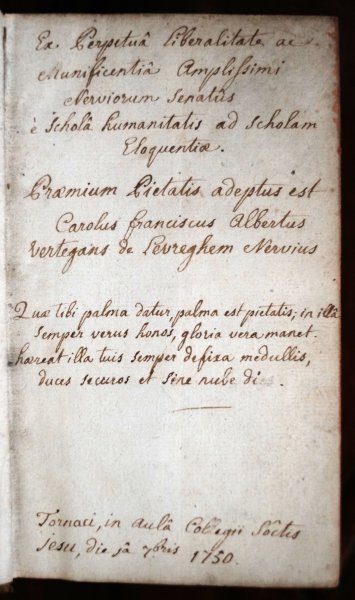 Ex Perpetuâ liberalitate ac
Munificentiâ Amplissimi
Nerviorum Senatûs
è scholâ humanitatis ad scholam
Eloquentiæ.
Præmium Pietatis adeptus est
Carolus franciscus Albertus
Vertegans de Levreghem Nervius
Quæ tibi palma datur, palma est pietatis; in illâ
semper verus honos, gloria vera manet.
hæreat illa tuis semper defixa medullis,
duces securos et sine nube dies.
Tornaci, in aulâ Collegii Soctis
Jesu, die 7bris 1750.